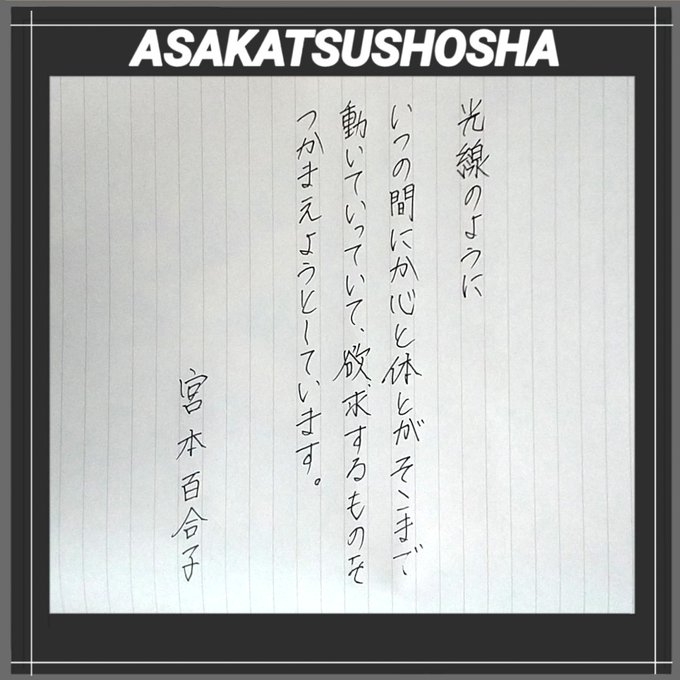 ASAKATSUSHOSHA
光線のように
いつの間にか心と体とがそこまで
動いていっていて、欲求するものを
つかまえようとしています。
宮本百合子